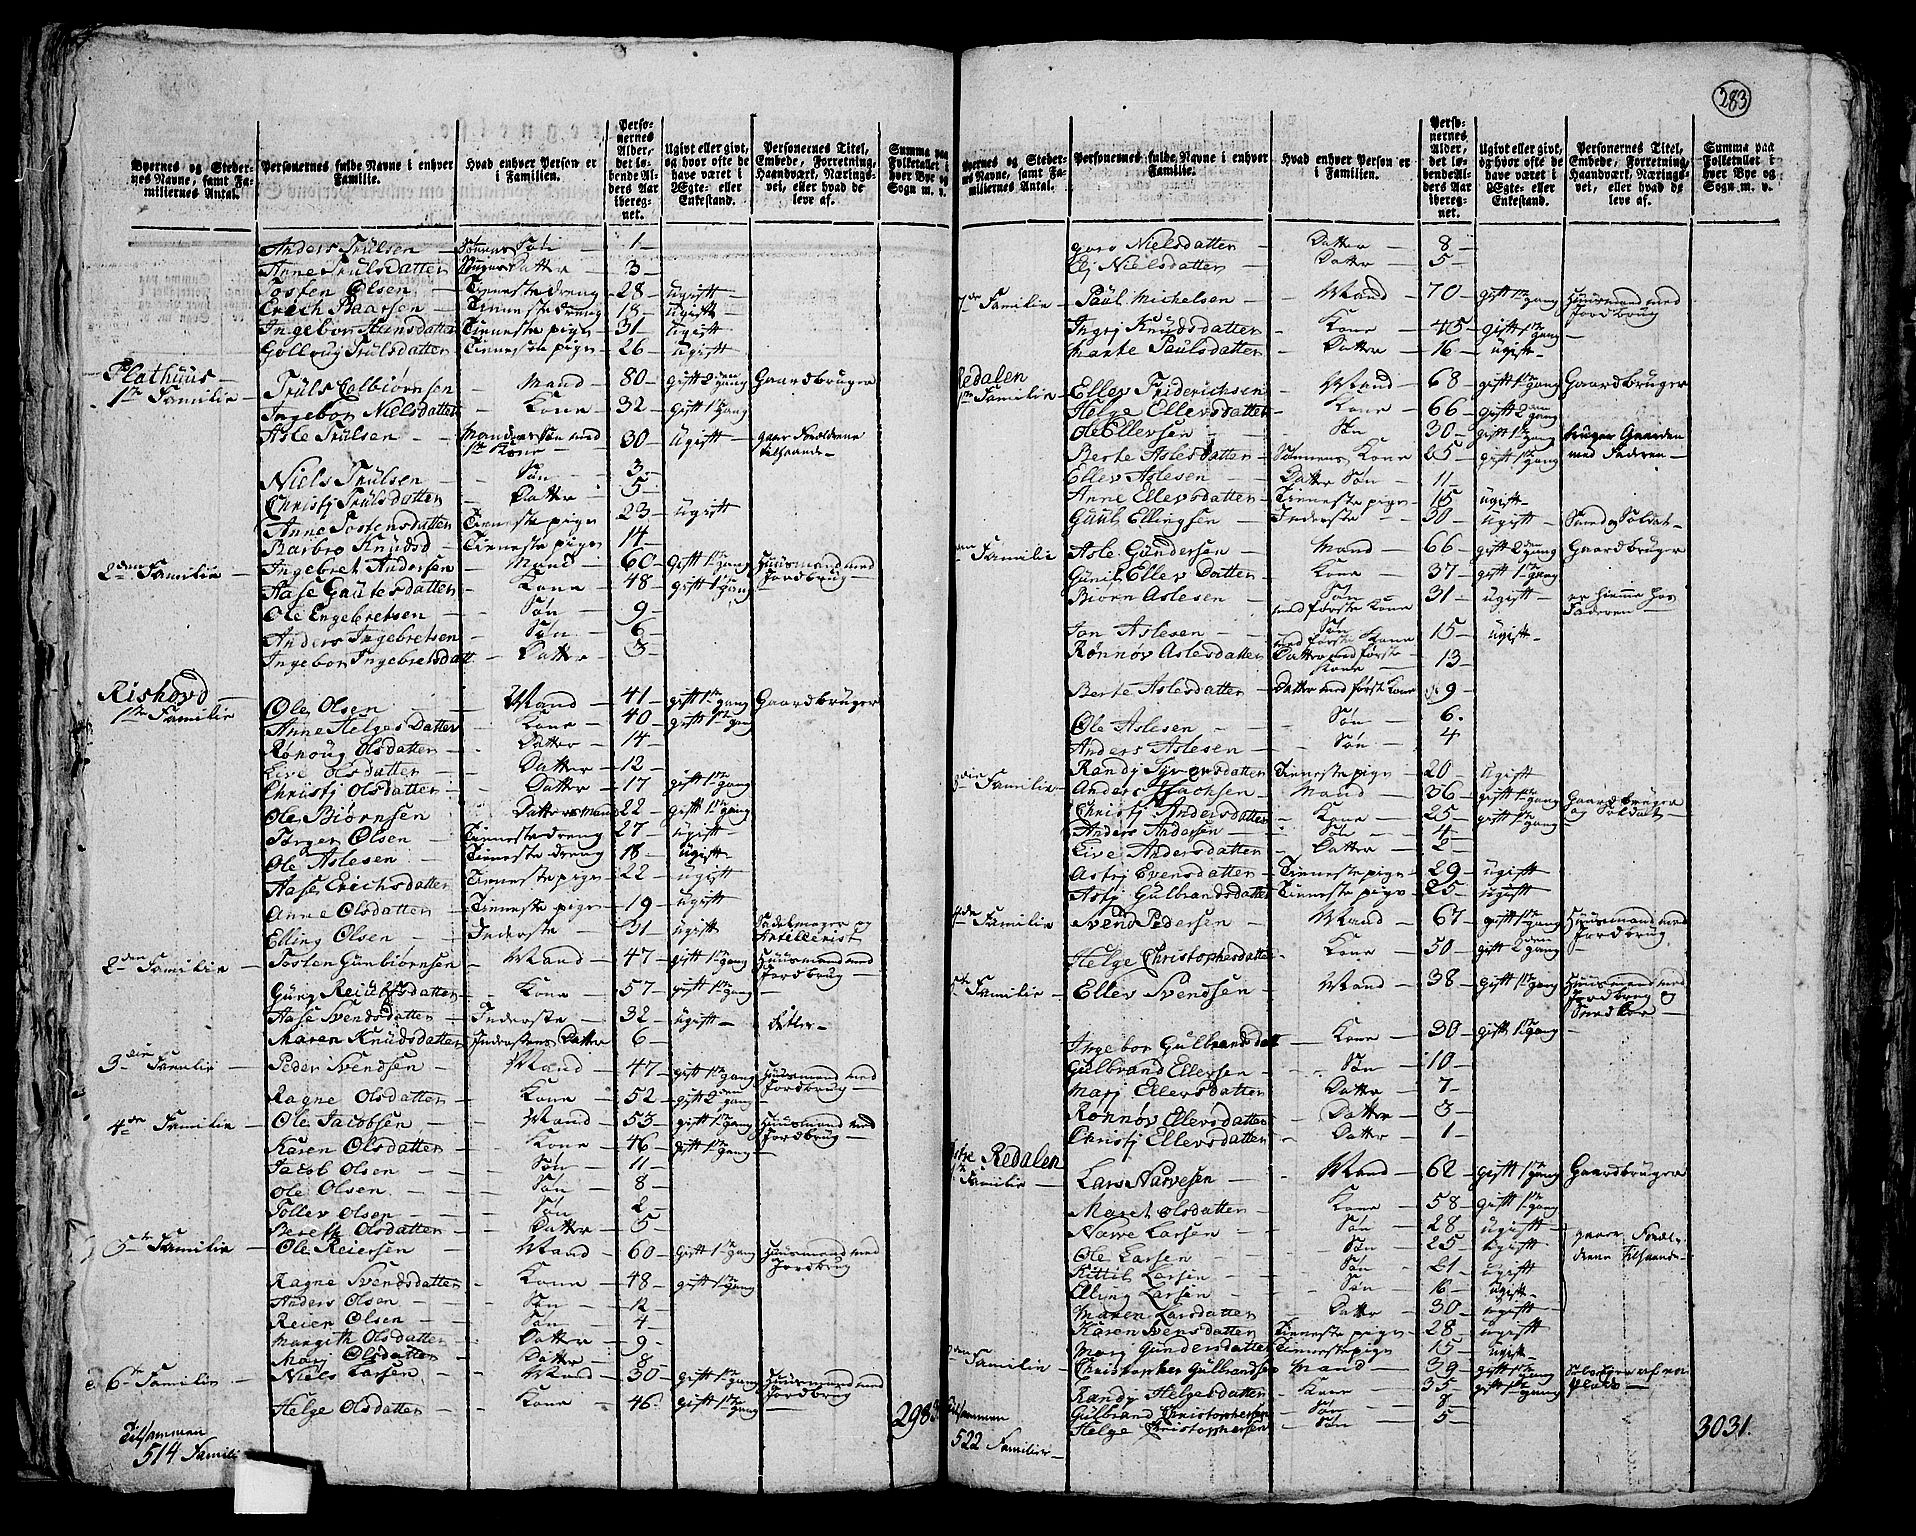 283
Byernes og Stedernes Navne, samt Familiernes Antal.
Personernes fulde Navne i enhver Familie.
Hvad enhver Person er i Familien.
Personernes Alder, det løbende Alders Aar iberegnet.
Ugivt eller givt, og hvor ofte de have været i Ægte- eller Enkestand.
Personernes Titel, Embede, Forretning, Haandværk, Næringsvei, eller hvad de leve af.
Summa paa Folketallet i hver Bye og Sogn m. v.
Anders Trulsen — Sønnens Søn — 1 —
Anne Trulsdatter Datter — 3 —
Tosten Olsen — Tienneste dreng — 28 — ugift —
Erich Baarsen — Tienneste dreng — 18 — ugift
Ingebor Knudsdatter Tienneste pige — 31 — ugift
Golloug Trulsdatter Tienneste pige — 26 — ugift
Plathuus —
1te Familie — Truls Colbiørnsen — Mand — 80 — gift 2den gang Gaardbruger
Ingebor Nielsdatter — Kone — 32 — gift 1te gang
Asle Trulsen — Mandens Søn med 1te Kone — 30 — ugift — gaar Forældrene tilhaande —
Niels Trulsen — Søn — 3 —
Christj Trulsdatter — Datter — 5 —
Anne Tostensdatter Tienneste pige — 23 — ugift
Barbro Knudsd — Tienneste pige — 14 —
2den Familie — Ingebret Andersen — Mand — 60 — gift 1te gang Huusmand med Jordbrug —
Aase Gautesdatter — Kone — 48 — gift 1te gang
Ole Engebretsen — Søn — 9 —
Anders Ingebretsen — Søn — 6 —
Ingebor Ingebretsdatt — Datter — 3 —
Rishovd —
1te Familie Ole Olsen — Mand — 41 — gift 1te gang Gaardbruger
Anne Helges Datter — Kone — 40 — gift 1te gang
Rønoug Olsdatter — Datter — 14 —
Live Olsdatter — Datter — 12 —
Christj Olsdatter — Datter — 17 gift 1te gang
Ole Biørnsen — Datters Mand 22 — gift 1te gang
Torger Olsen — Tienneste dreng — 27 — ugift
Ole Aslesen — Tienneste dreng 18 — ugift —
Aase Erichsdatter Tienneste pige — 22 — ugift
Anne Olsdatter — Tienneste pige — 19 — ugift
Elling Olsen — Inderste — 31 — ugift Sadelmager og Artillerist
2den Familie — Tosten Gunbiørnsen — Mand — 47 — gift 1te gang Huusmand med Jordbrug —
Guro Reiulfsdatter — Kone — 57 — gift 1te gang —
Aase Svendsdatter — Inderste — 32 — ugift — betler —
Maren Knudsdatter Inderstens Datter 6 —
3die Familie — Peder Svendsen — Mand — 47 — gift 1te gang Huusmand med Jordbrug —
Ragne Olsdatter — Kone — 52 — gift 2den gang —
4de Familie — Ole Jacobsen — Mand — 53 — gift 1te gang Huusmand med Jordbrug —
Karen Olsdatter — Kone — 46 — gift 1te gang —
Jacob Olsen — Søn — 11 —
Ole Olsen — Søn — 8 —
Tollev Olsen — Søn — 2 —
Bereth Olsdatter — Datter — 5 —
5te Familie — Ole Reiersen — Mand — 60 — gift 1te gang Huusmand med Jordbrug
Ragne Svendsdatter — Kone — 48 — gift 1te gang
Anders Olsen — Søn — 12 —
Reier Olsen — Søn — 4 —
Margith Olsdatter — Datter — 9 —
Marj Olsdatter — Datter — 8
6te Familie — Niels Larsen — Mand — 30 — gift 1te gang Huusmand med Jordbrug
Helge Olsdatter — Kone — 46. gift 1te gang —
Tilsammen
514 Famili
298
Byernes og Stedernes Navne, samt Familiernes Antal.
Personernes fulde Navne i enhver Familie.
Hvad enhver Person er i Familien.
Personernes Alder, det løbende Alders Aar iberegnet.
Ugivt eller givt, og hvor ofte de have været i Ægte- eller Enkestand.
Personernes Titel, Embede, Forretning, Haandværk, Næringsvei, eller hvad de leve af.
Summa paa Folketallet i hver Bye og Sogn m. v.
Nielsdatter — Datter — 8 —
Nielsdatter — Datter — 5 —
7de Familie — Paul Michelsen — Mand — 70 — gift 1te gang Huusmand med Jordbrug
Ingrj Knudsdatter — Kone — 45 — gift 1te gang —
Marte Paulsdatter — Datter — 16 — ugift —
Redalen
1te Familie — Ellev Friderichsen — Mand — 68 — gift 1te gang Gaardbruger
Helge Ellevsdatter — Kone — 66 — gift 2den gang
Ole Ellevsen — Søn — 30 — gift 1te gang bruger Gaarden med Faderen —
Berte Aslesdatter — Sønnens Kone 25 — gift 1te gang
Ellev Aslesen — Datter Søn — 11 —
Anne Ellevsdatter — Tienneste pige — 15 ugift —
Guul Ellingsen — Inderste — 30 — ugift — Smed og Soldat —
Familie — Asle Gundersen — Mand — 66 — gift 2den gang Gaardbruger
Gunil Ellev Datter — Kone — 37 — gift 1te gang —
Biørn Aslesen — Søn med første Kone 31 — ugift — er hieme hos Faderen —
Jon Aslesen — Søn med første Kone 15 — ugift —
Rønnøv Aslesdatter Datter med første Kone — 13 —
Berte Aslesdatter — Datter med først Kone 9 —
Ole Aslesen — Søn — 6.
Anders Aslesen — Søn — 4
Randj Syversdatter Tienneste pige — 20 — ugift
3die Familie — Anders Isachsen — Mand — 36 — gift 1te gang Gaardbruger og Soldat —
Christj Andersdatter — Kone — 25 — gift 1te gang
Anders Andersen — Søn — 4 —
Live Andersdatter — Datter — 2 —
Astrj Evensdatter — Tienneste pige — 29 — ugift
Astj Gulbrandsdatter Tienneste pige — 25 — ugift
4de Familie — Svend Pedersen — Mand — 67 — gift 1te gang Huusmand med Jordbrug —
Helge Christophersdatter Kone — 50 — gift 2den gang
5te Familie — Ellev Svendsen — Mand — 38 — gift 1te gang Huusmand med Jordbrug og
Ingebor Gulbrandsdatt — Kone — 30 — gift 1te gang —
Gulbrand Ellevsen — Søn — 10 —
Marj Ellevsdatter — Datter — 7 —
Rønnøv Ellevsdatter — Datter — 3 —
Christj Ellevsdatter — Datter — 1 —
Redalen
Familie — Lars Narvesen — Mand — 62 — gift 1te gang Gaardbruger
Maret Olsdatter — Kone — 58 — gift 1te gang
Narve Larsen — Søn — 28 — ugift —
Ole Larsen — Søn — 25 — ugift
Kittil Larsen — Søn — 21 — ugift
Elling Larsen — Søn — 16 — ugift —
Maren Larsdatter — Datter — 30 — ugift
gaaer Forældrene tilhaande —
Karen Svensdatter Tienneste pige — 28 — ugift
Marj Gundersdatter Tienneste pige 15 — ugift —
Familie — Christopher Gulbrandsen Mand — 39 — gift 1te gang
Randj Helgesdatter — Kone — 35 — gift 1te gang
Gulbrand Christophersen Søn — 8
Helge Christophersen — Søn — 5 —
Tilsammen
522 Familier —
3031.